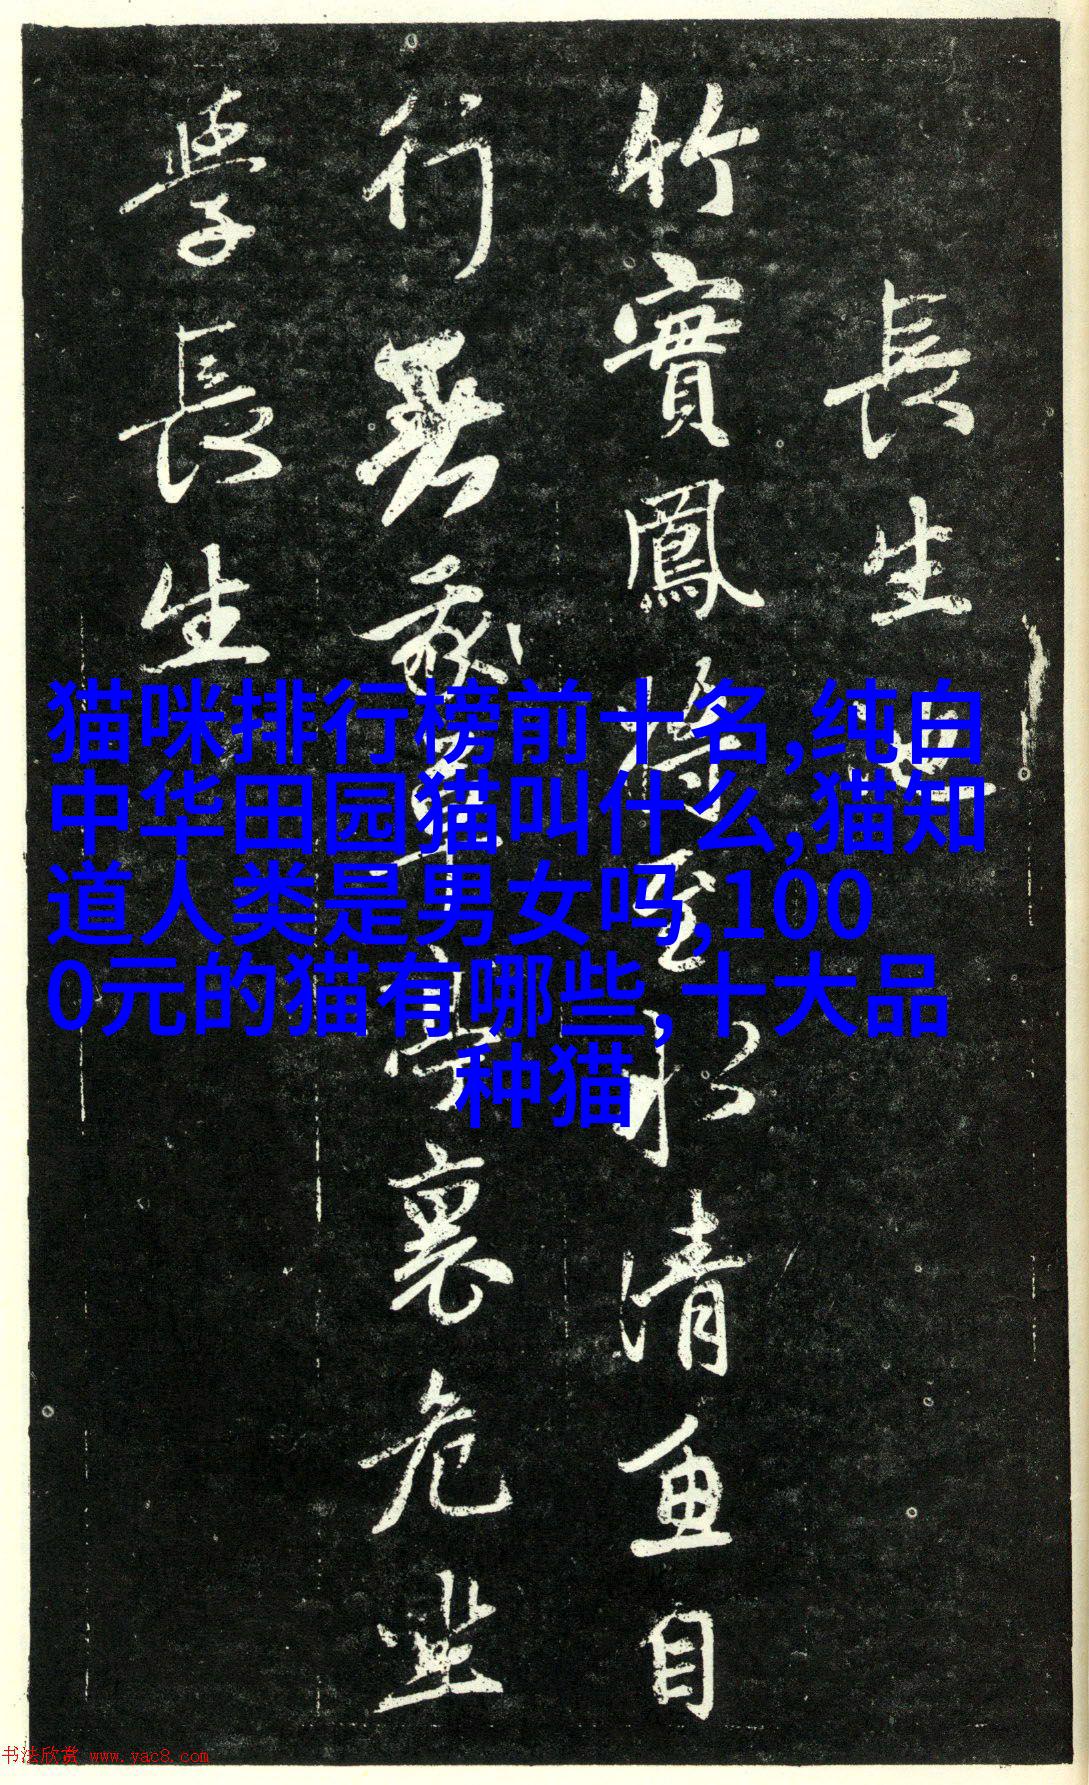 長生
竹實鳳將至水清魚自
行 亭裏危坐
學長生
猫咪排行榜前十名,纯白
中华田园猫叫什么,猫知
道人类是男女吗,100
0元的猫有哪些,十大品
种猫
书法欣赏 www.yac8.com